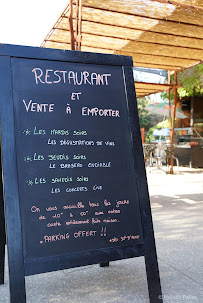 RESTAURANT
ET
VENTE À EMPORTER
LES MARDIS SOIRS
LES DÉGUSTATIONS DE VINS
LES JEUDIS SOIRS
LE BRASERO ENSEMBLE
LES SAMEDIS SOIRS
LES CONCERTS LIVE
On vous accueille tous les jours
de 10H à 00H avec notre
carte entièrement faite maison
PARKING OFFERT !!